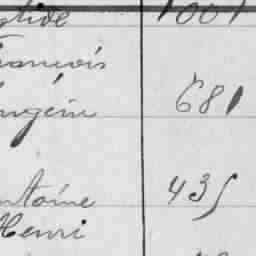 1001
François
Eugène 681
Antoine 435
Henri